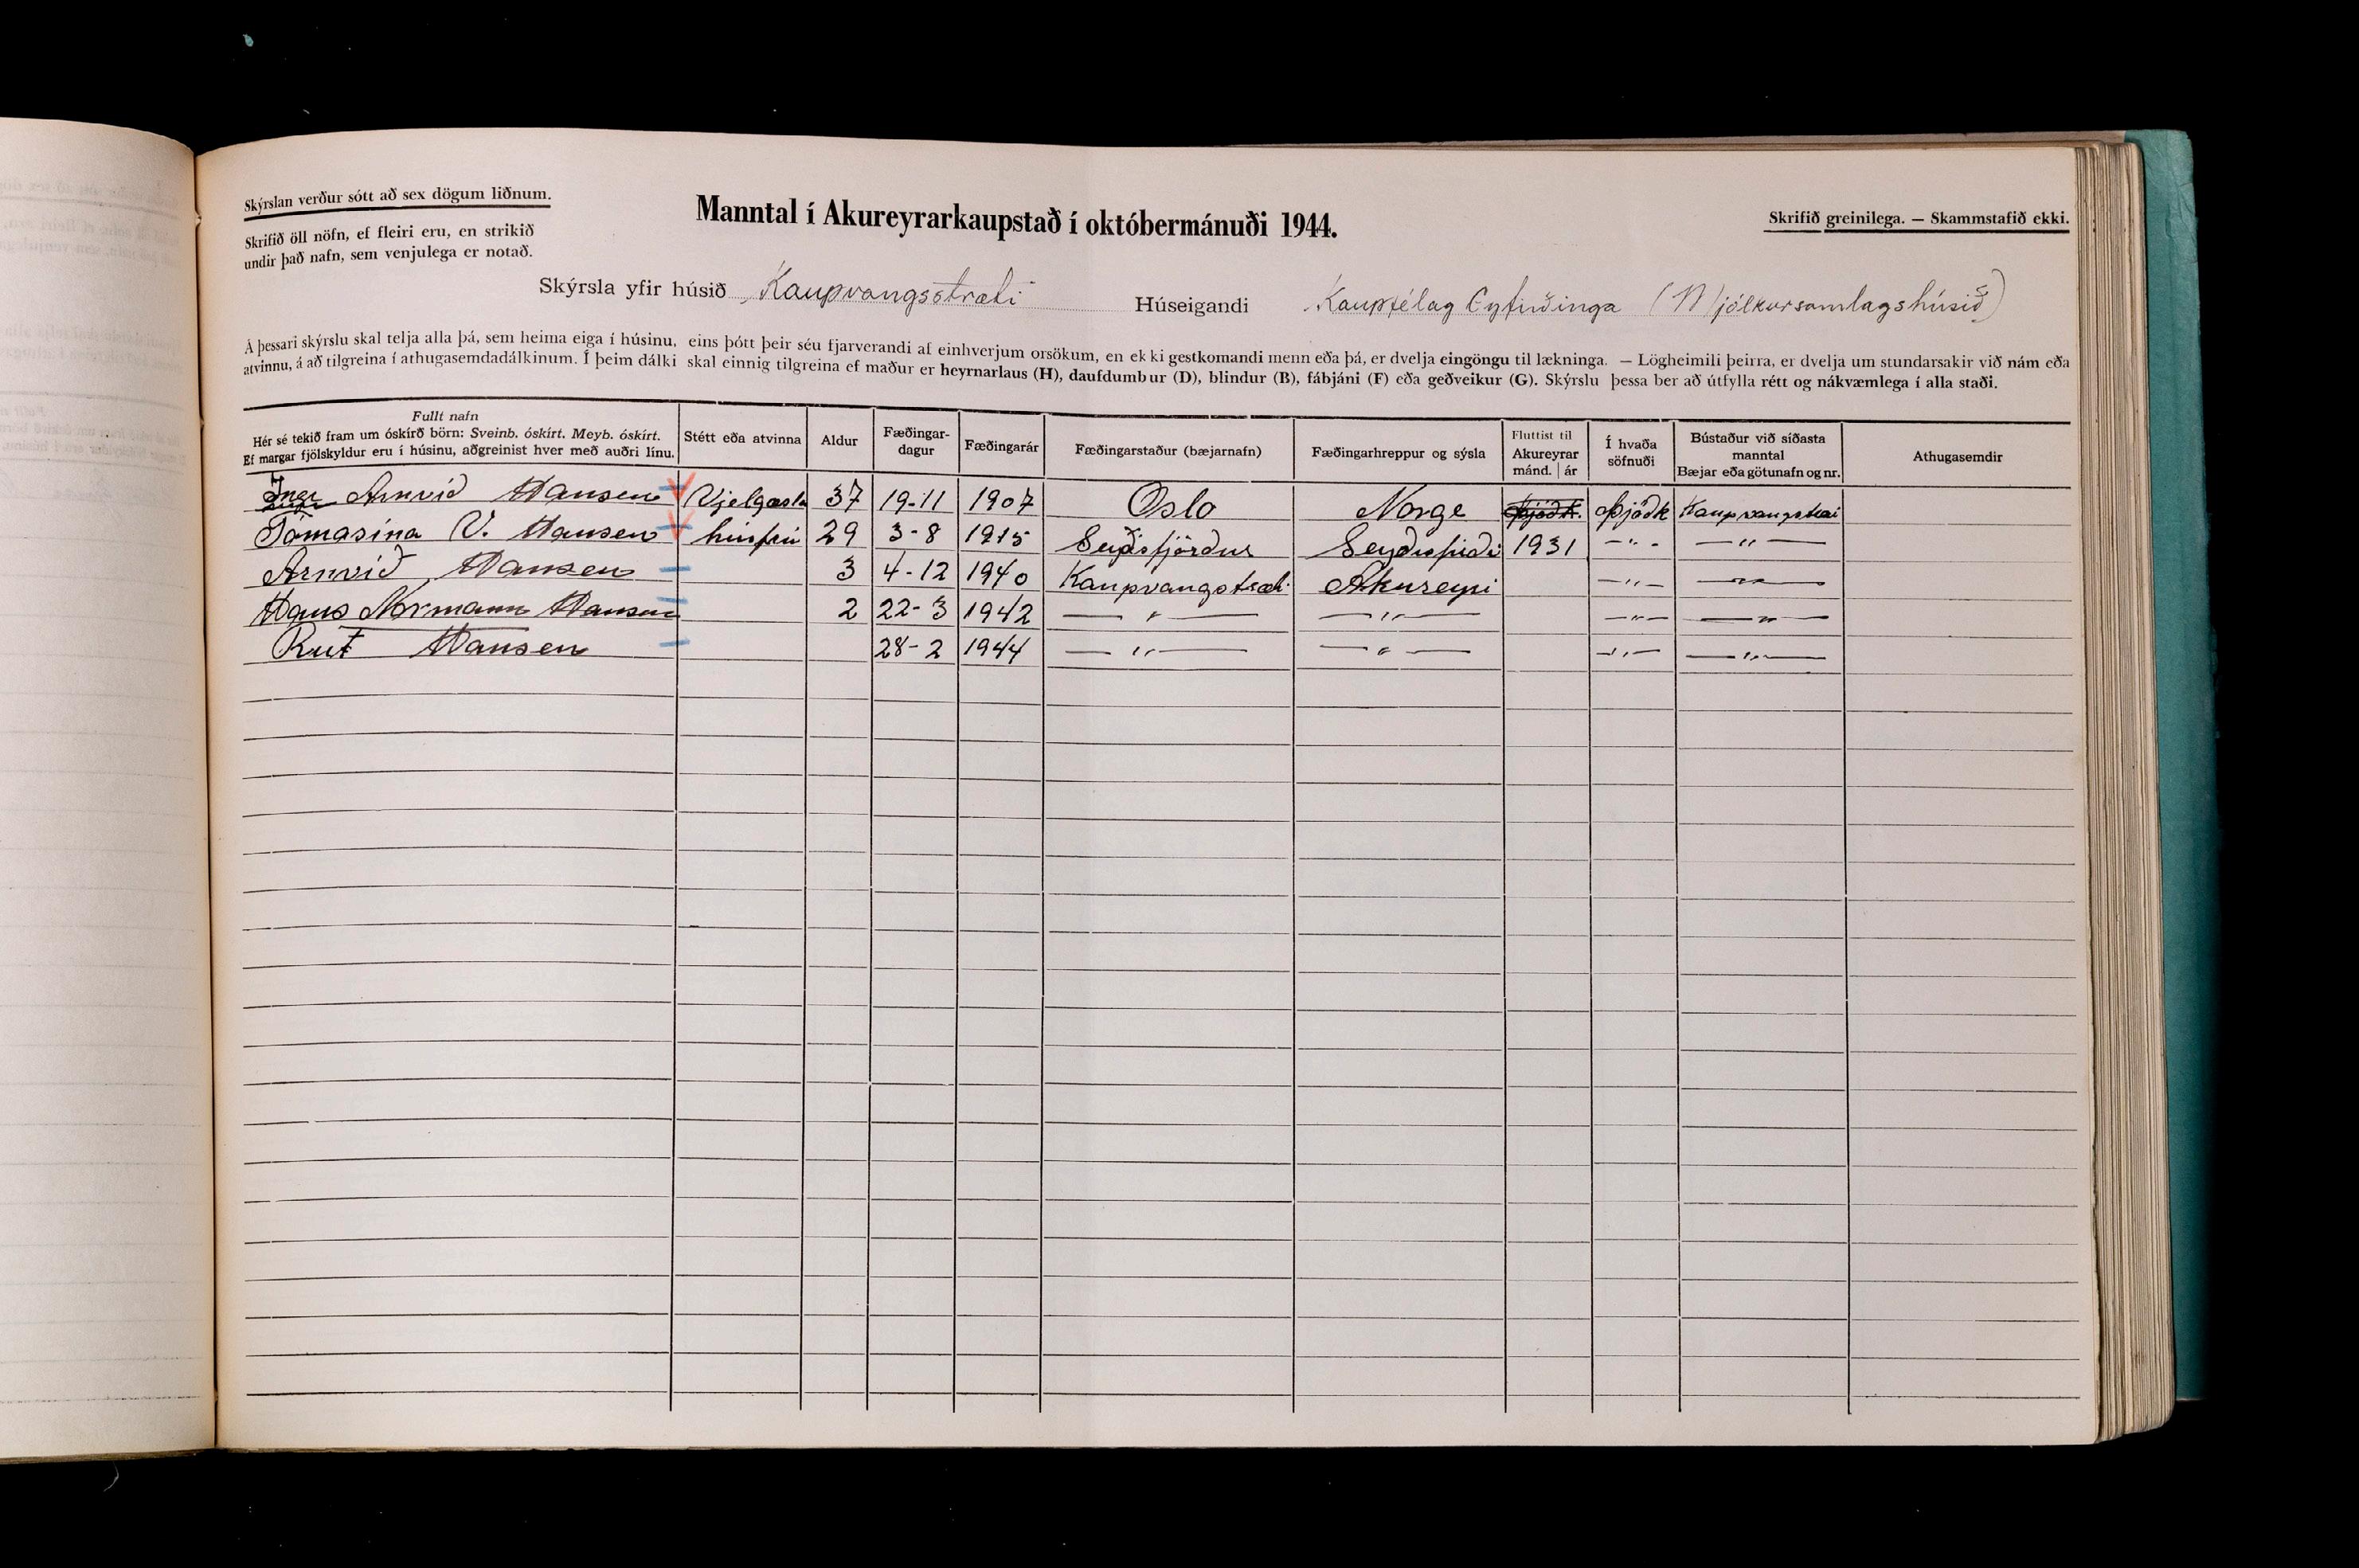 Skýrslan verður sótt að sex dögum liðnum.
Skrifið öll nöfn, ef fleiri eru, en strikið
undir það nafn, sem venjulega er notað.
Manntal í Akureyrarkaupstað í októbermánuði 1944.
Skrifið greinilega. — Skammstafið ekki.
Skýrsla yfir húsið Kaupvangsstræti Húseigandi Kaupfélag Eyfirðinga (Mjólkursamlagshúsið)
Á þessari skýrslu skal telja alla þá, sem heima eiga í húsinu, eins þótt þeir séu fjarverandi af einhverjum orsökum, en ekki gestkomandi menn eða þá, er dvelja eingöngu til lækninga. — Lögheimili þeirra, er dvelja um stundarsakir við nám eða
atvinnu, á að tilgreina í athugasemdadálkinum. Í þeim dálki skal einnig tilgreina ef maður er heyrnarlaus (H), daufdumbur (D), blindur (B), fábjáni (F) eða geðveikur (G). Skýrslu þessa ber að útfylla rétt og nákvæmlega í alla staði.
Fullt nafn
Hér sé tekið fram um óskírð börn: Sveinb. óskírt. Meyb. óskírt.
Ef margar fjölskyldur eru í húsinu, aðgreinist hver með auðri línu.
Stétt eða atvinna
Aldur
Fæðingar-
dagur
Fæðingarár
Fæðingarstaður (bæjarnafn)
Fæðingarhreppur og sýsla
Fluttist til
Akureyrar
mánd. | ár
Í hvaða
söfnuði
Bústaður við síðasta
manntal
Bæjar eða götunafn og nr.
Athugasemdir
Arnvid Hansen Vjelgæsla 37 19-11 1907 Oslo Norge Þjóðk. Þjóðk Kaupvangstræi
Tómasína V. Hansen húsfrú 29 3-8 1915 Seyðisfjörður Seyðisfirði 1931 — " — — " —
Arnvið Hansen 3 4-12 1940 Kaupvangstræti Akureyri — " — — " —
Hans Normann Hansen 2 22-3 1942 — " — — " — — " — — " —
Rut Hansen 28-2 1944 — " — — " — — " — — " —